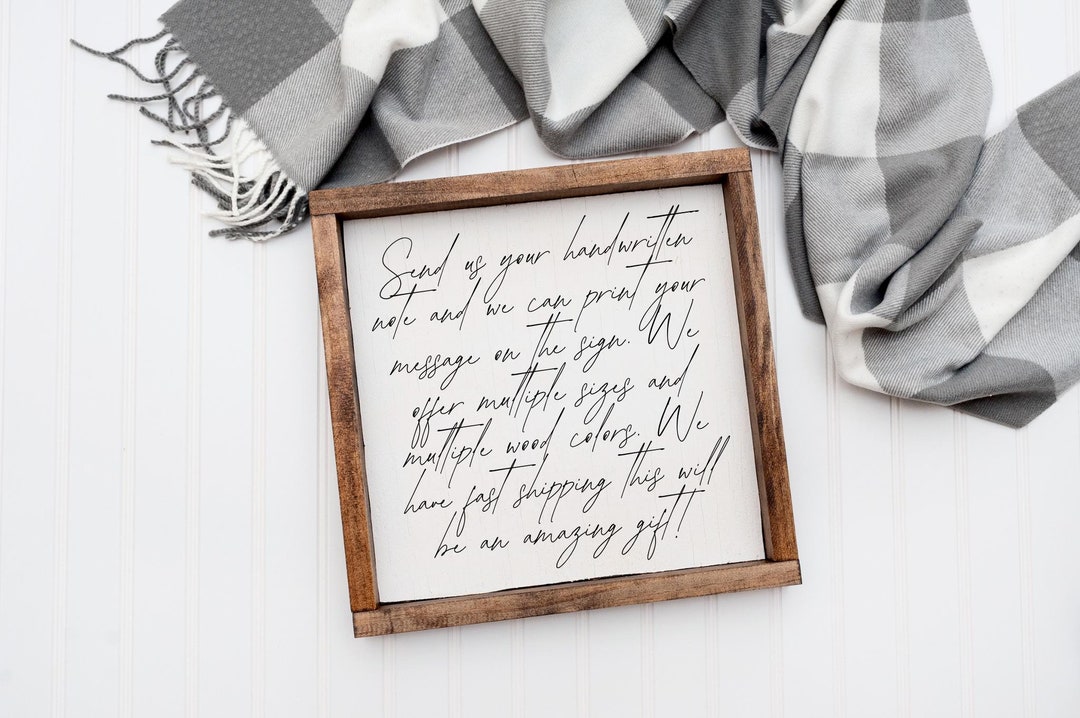 Send us your handwritten
note and we can print your
message on the sign. We
offer multiple sizes and
multiple wood colors. We
have fast shipping this will
be an amazing gift!